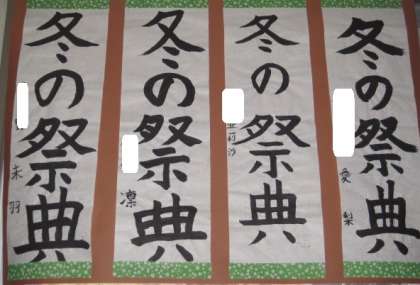 冬の祭典
愛梨
冬の祭典
亜莉沙
冬の祭典
凛
冬の祭典
未羽